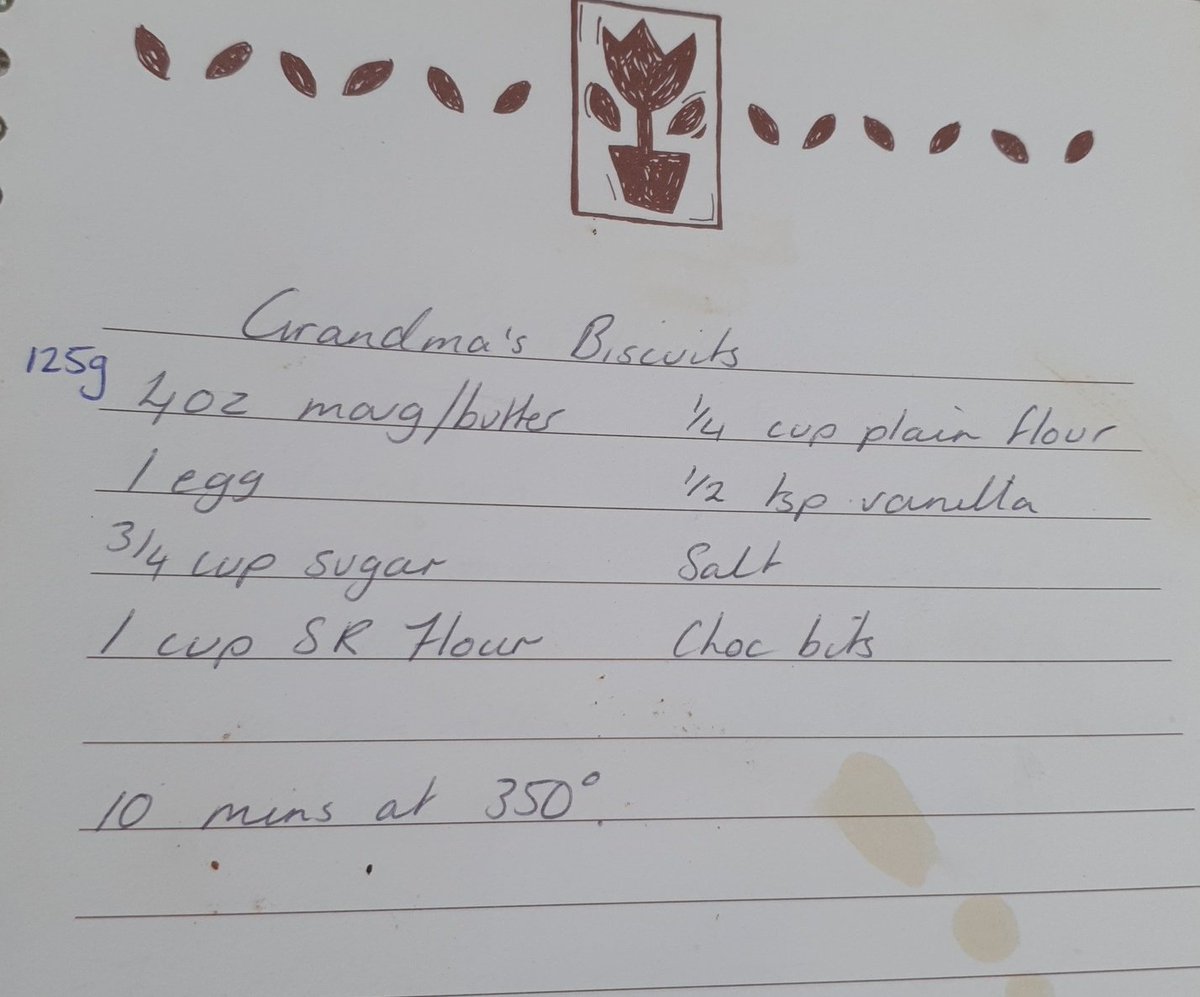 Grandma's Biscuits
125g
4oz marg/butter 1/4 cup plain flour
1 egg 1/2 tsp vanilla
3/4 cup sugar Salt
1 cup SR Flour Choc bits
10 mins at 350°.